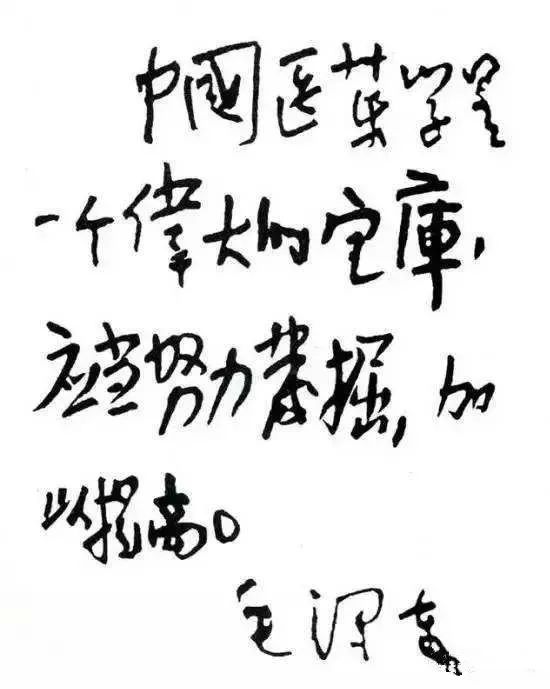 中國医药学是
一个偉大的宝庫，
应当努力発掘，加
以提高。
毛泽东